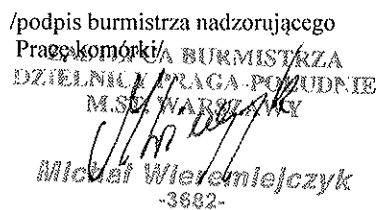 /podpis burmistrza nadzorującego
Pracę komórki/
ZASTĘPCA BURMISTRZA
DZIELNICY PRAGA-POŁUDNIE
M.ST. WARSZAWY
Michał Wieremiejczyk
-3682-